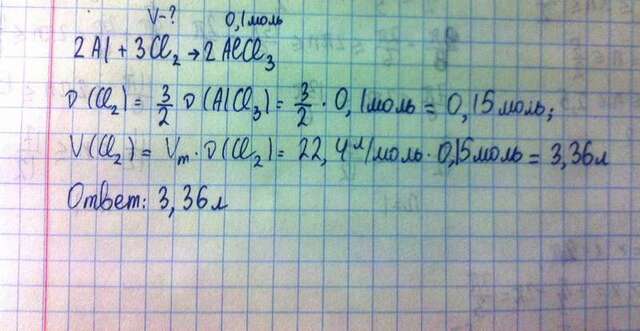 V-? 0,1моль
2Al + 3Cl₂ → 2AlCl₃
ν(Cl₂) = 3/2 ν(AlCl₃) = 3/2 · 0,1моль = 0,15моль;
V(Cl₂) = Vm · ν(Cl₂) = 22,4 л/моль · 0,15моль = 3,36л
Ответ: 3,36л